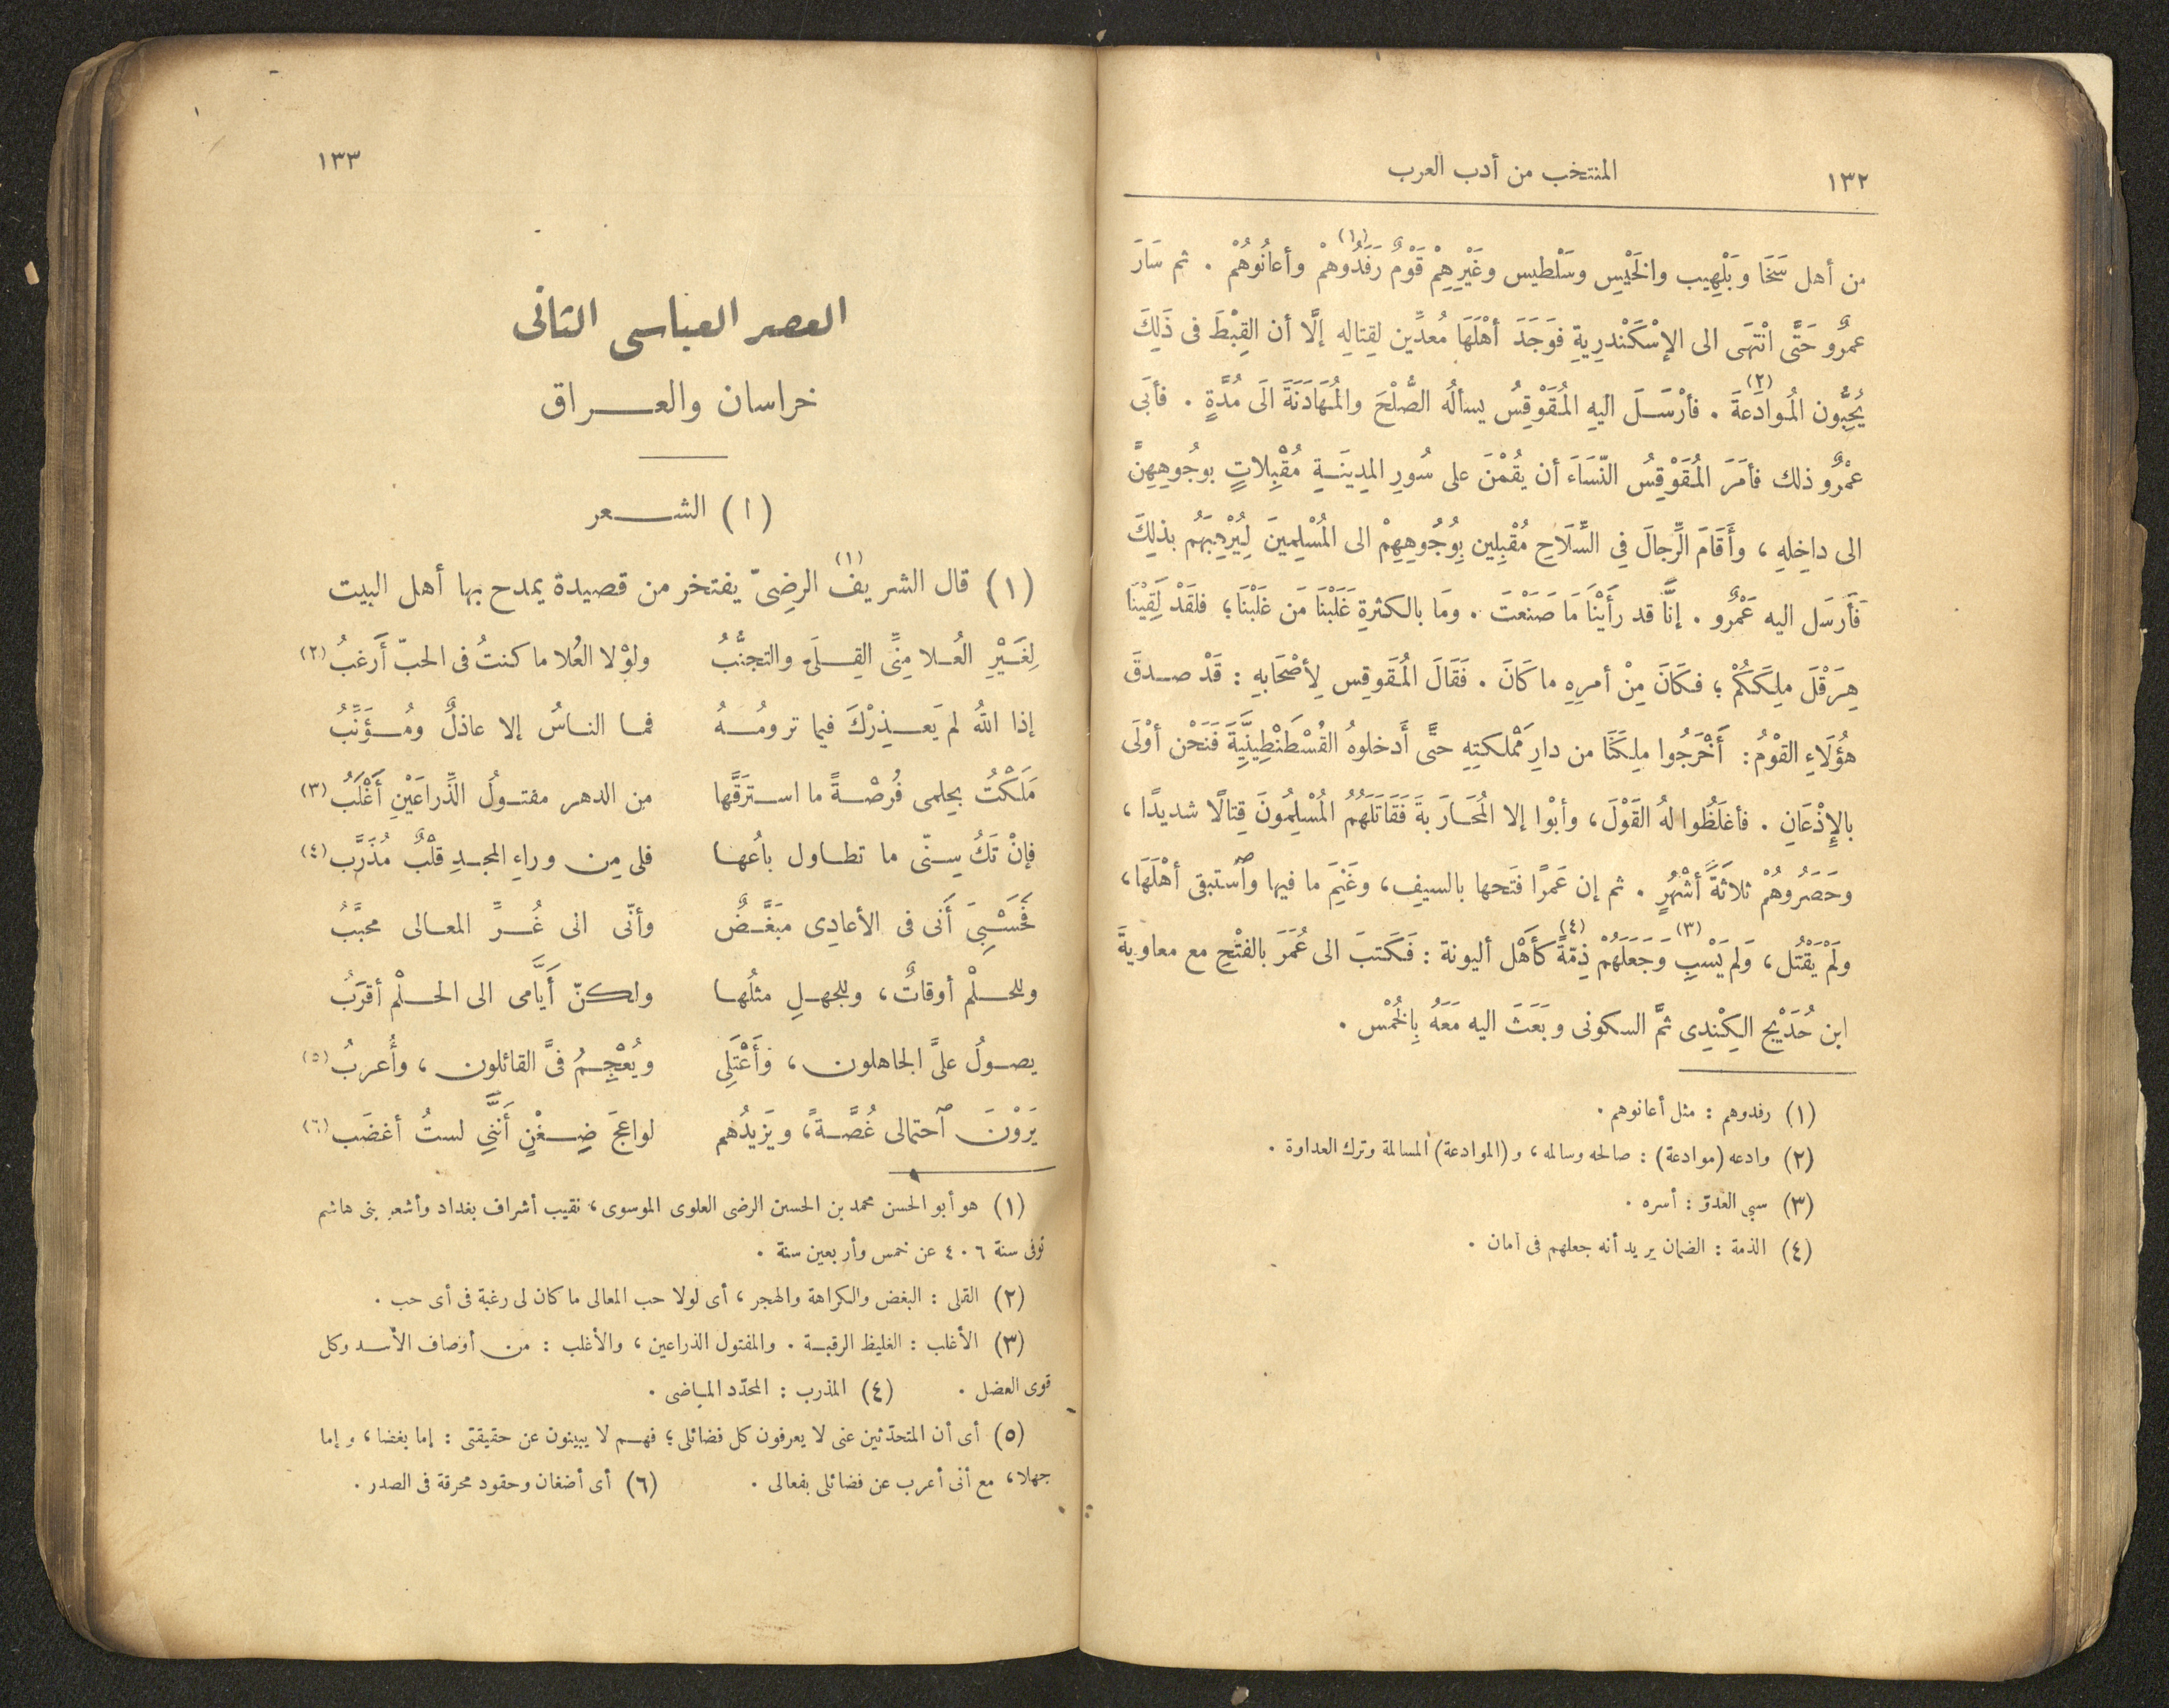 ١٣٢
المنتخب من أدب العرب
من أهل سَخَا وبَلْهِيب والخَيْسِ وسَلْطيس وغَيْرِهِمْ قَوْمٌ رَفَدُوهمْ (١) وأعانُوهُمْ . ثم سَارَ
عمرٌو حَتَّى انْتهَى الى الإسْكَنْدرِيةِ فوَجَدَ أهْلَهَا مُعدِّين لِقِتالِهِ إلَّا أن القِبْطَ فى ذَلِكَ
يُحِبُّون المُوادَعةَ (٢) . فأرْسَلَ اليهِ المُقَوْقِسُ يسألُه الصُّلْحَ والمُهَادَنَةَ الَى مُدَّةٍ . فأبَى
عمْرٌو ذلك فأمَرَ المُقَوْقِسُ النّسَاءَ أن يقُمْنَ على سُورِ المدِينَةِ مُقْبِلاتٍ بوجُوهِهِنَّ
الى داخِلهِ ، وأَقَامَ الرِّجالَ فِي السِّلَاحِ مُقْبِلِين بِوُجُوهِهِمْ الى المُسْلِمينَ لِيُرْهِبَهُم بذلِكَ
فَأَرسَل اليه عَمْرٌو . إنَّا قد رأَيْنَا مَا صَنَعْتَ . ومَا بالكثرةِ غَلَبْنَا مَن غَلَبْنَا؛ فلقَدْ لَقِينَا
هِرَقْلَ ملِكَكُمْ ؛ فكَانَ مِنْ أمرِهِ ما كَانَ . فَقَالَ المُقَوقِس لِأصْحَابهِ : قَدْ صدقَ
هؤُلَاءِ القوْمُ : أَخْرَجُوا ملِكَنَا من دارِ مَمْلكتِهِ حتَّى أَدخلوهُ القُسْطَنْطِينِيَّةَ فَنَحْن أوْلَى
بالإِذْعَانِ . فأغلَظُوا لهُ القَوْلَ، وأبْوا إلا المُحَارَبةَ فَقَاتَلَهُمُ المُسْلِمُونَ قِتالًا شديدًا ،
وحَصَرُوهُمْ ثلاثَةَ أَشْهُرٍ . ثم إن عَمرًا فتَحها بالسيفِ، وغَنِمَ ما فيها وٱستبقى أهْلَهَا،
ولَمْ يَقْتُل، وَلم يَسْبِ (٣) وَجَعَلَهُمْ ذِمّةً (٤) كأَهْل أليونة : فَكَتبَ الى عُمَرَ بالفتْحِ مع معاويةَ
ابن حُدَيْج الكِنْدِى ثمَّ السكونى وبَعَثَ اليه مَعَهُ بِالخُمْس .
(١) رفدوهم : مثل أعانوهم .
(٢) وادعه (موادعة) : صالحه وسالمه، و (الموادعة) المسالمة وترك العداوة .
(٣) سبى العدوّ : أسره .
(٤) الذمة : الضمان يريد أنه جعلهم فى أمان .
١٣٣
العصر العباسى الثانى
خراسان والعراق
(١) الشعر
(١) قال الشريف (١) الرضِىّ يفتخر من قصيدة يمدح بها أهل البيت
لِغَيْرِ العُلا مِنِّى القِلَى والتجنُّبُ ولوْلا العُلا ما كنتُ فى الحبّ أَرغبُ (٢)
إذا اللهُ لم يَعذِرْكَ فيما ترومُهُ فما الناسُ إلا عاذلٌ ومُؤَنِّبُ
مَلَكْتُ بحِلمى فُرصْةً ما استرَقَّها من الدهر مفتولُ الذِّراعَيْنِ أَغْلَبُ (٣)
فإنْ تَكُ سِنّى ما تطاول باعُها فلى مِن وراءِ المجدِ قلْبٌ مُذَرَّب (٤)
فَحَسْبِىَ أَنى فى الأعادِى مبَغَّضٌ وأنّى الى غُرِّ المعالى محبَّبُ
وللحلْم أوقاتٌ، وللجهلِ مثلُها ولكنّ أَيَّامى الى الحلْم أقرَبُ
يصولُ علىَّ الجاهلون ، وَأَعْتَلِى ويُعْجِمُ فىَّ القائلون ، وأُعربُ (٥)
يَرَوْنَ ٱحتمالى غُصَّةً، ويَزيدُهم لواعجَ ضِغْنٍ أَنَّنِى لستُ أغضَب (٦)
(١) هو أبو الحسن محمد بن الحسين الرضى العلوى الموسوى، نقيب أشراف بغداد وأشعر بنى هاشم
توفى سنة ٤٠٦ عن خمس وأربعين سنة .
(٢) القلى : البغض والكراهة والهجر ، أى لولا حب المعالى ما كان لى رغبة فى أى حب .
(٣) الأغلب : الغليظ الرقبة . والمفتول الذراعين ، والأغلب : من أوصاف الأسد وكل
قوى العضل . (٤) المذرب : المحدّد الماضى .
(٥) أى أن المتحدّثين عنى لا يعرفون كل فضائلى؛ فهم لا يبينون عن حقيقتى : إما بغضا، وإما
جهلا، مع أنى أعرب عن فضائلى بفعالى . (٦) أى أضغان وحقود محرقة فى الصدر .